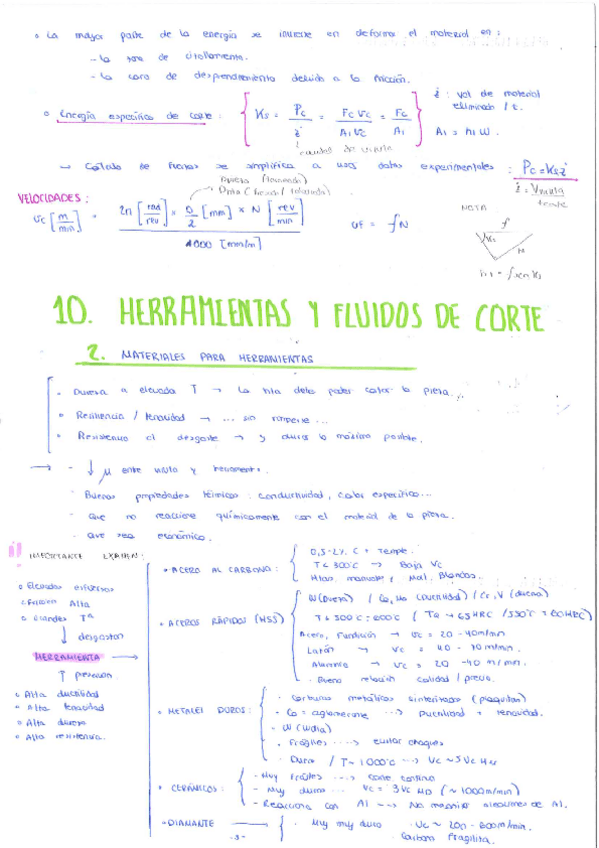 La mayor parte de la energía se invierte en deformar el material en:
- La zona de cizallamiento.
- La cara de desprendimiento debido a la fricción.
Energía específica de corte: Ks = Pc / ż = Fc Vc / A1 Vc = Fc / A1
ż: vol de material eliminado / t.
A1 = h1 w.
→ Cálculo de fuerzas se simplifica a usar datos experimentales: Pc = Ks ż
VELOCIDADES:
Vc [m/min] = 2π [rad/rev] × D/2 [mm] × N [rev/min] / 1000 [mm/m]
Vf = f N
NOTA
f
10. HERRAMIENTAS Y FLUIDOS DE CORTE
2. MATERIALES PARA HERRAMIENTAS
Dureza a elevada T → La hta debe poder cortar la pieza...
Resiliencia / tenacidad → ... sin romperse...
Resistencia al desgaste → y durar lo máximo posible.
→ - ↓ μ entre viruta y herramienta.
- Buenas propiedades térmicas: conductividad, calor específico...
- Que no reaccione químicamente con el material de la pieza.
- Que sea económico.
¡! IMPORTANTE EXAMEN:
Elevados esfuerzos
Fricción Alta
Grandes Tª
↓ desgastan
HERRAMIENTA →
↑ precisan
Alta ductilidad
Alta tenacidad
Alta dureza
Alta resistencia.
ACERO AL CARBONO:
0,5-2% C + Temple.
T < 300°C → Baja Vc
Htas. manuales y Mat. Blandos.
ACEROS RÁPIDOS (HSS)
W (Dureza) / Co, Mo (Ductilidad) / Cr, V (dureza)
Acero, Fundición → Vc = 20 - 40 m/min
Latón → Vc = 40 - 70 m/min.
Aluminio → Vc = 20 - 40 m/min.
Buena relación calidad / precio.
METALES DUROS:
- Carburos metálicos sinterizados (plaquitas)
- Co = aglomerante ---> Ductilidad + tenacidad.
- W (Widia)
- Frágiles ----> evitar choques
- Duros / T ~ 1000°C ---> Vc ~ 5 Vc HSS
CERÁMICOS:
- Muy frágiles ---> corte continuo
- Muy duros ... Vc = 3 Vc MD (~ 1000 m/min)
- Reacciona con Al --> No mecanizar aleaciones de Al.
DIAMANTE →
Muy muy duro
Carbono
-3-